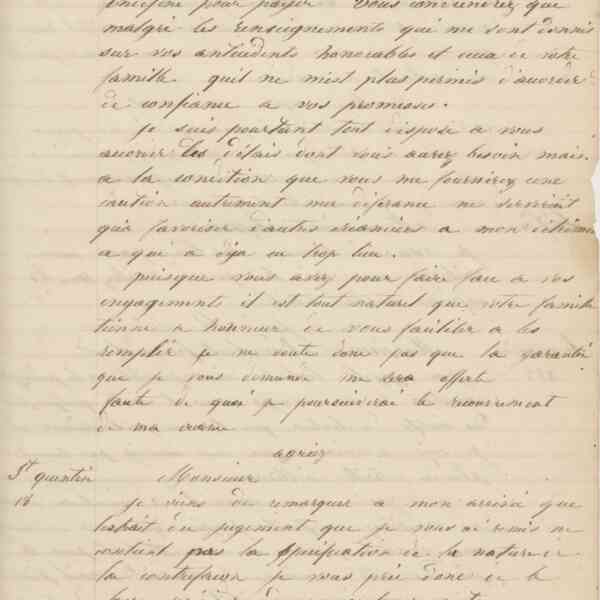 pour payer vous conviendrez que
malgré les renseignements qui me sont donnés
sur vos antécédents honorables et ceux de votre
famille qu'il ne m'est plus permis d'accorder
de confiance a vos promesses.
je suis pourtant tout disposé a vous
accorder les délais dont vous aurez besoin mais
a la condition que vous me fournirez une
caution autrement ma déférance ne servirait
qu'a favoriser d'autres créanciers a mon détriment
a qui a déja eu trop lieu.
puisque vous avez pour faire face a vos
engagements il est tout naturel que votre famille
tienne a honneur de vous faciliter a les
remplir je ne doute donc pas que la garantie
que je vous demande me sera offerte
faute de quoi je poursuivrai le recouvrement
de ma créance
agréez
St quentin Monsieur
18 je viens de remarquer a mon arrivée que
l'extrait du jugement que je vous ai remis ne
contient pas la spécification de la nature de
la contrefaçon je vous prie donc de le